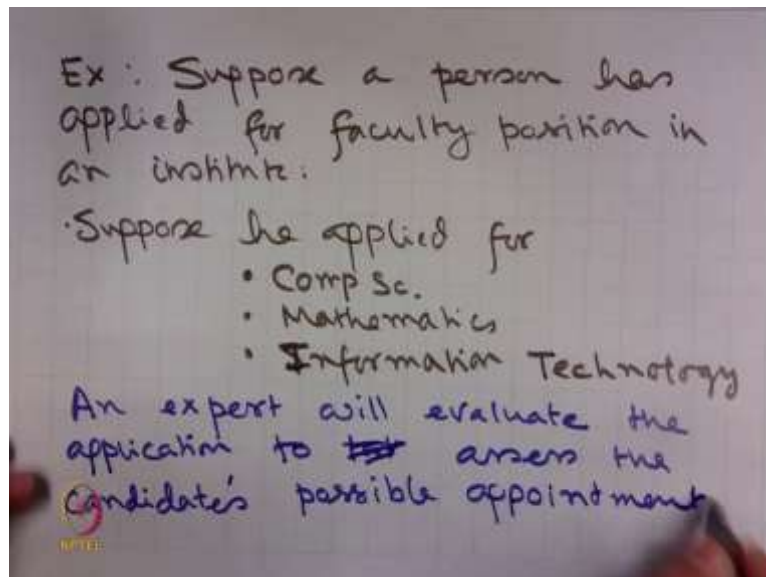 Ex : Suppose a person has
applied for faculty position in
an institute.
·Suppose he applied for
• Comp Sc.
• Mathematics
• Information Technology
An expert will evaluate the
application to assess the
candidate's possible appointment
NPTEL